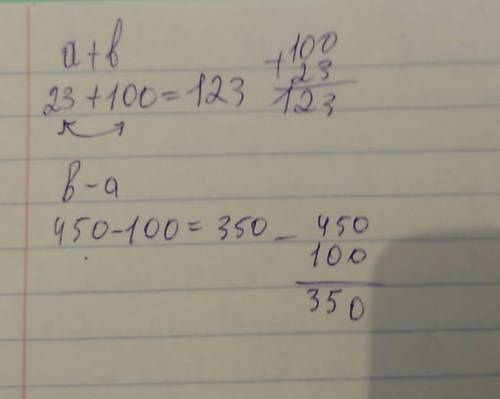 a + b
23 + 100 = 123
+ 100
23
123
b - a
450 - 100 = 350
- 450
100
350